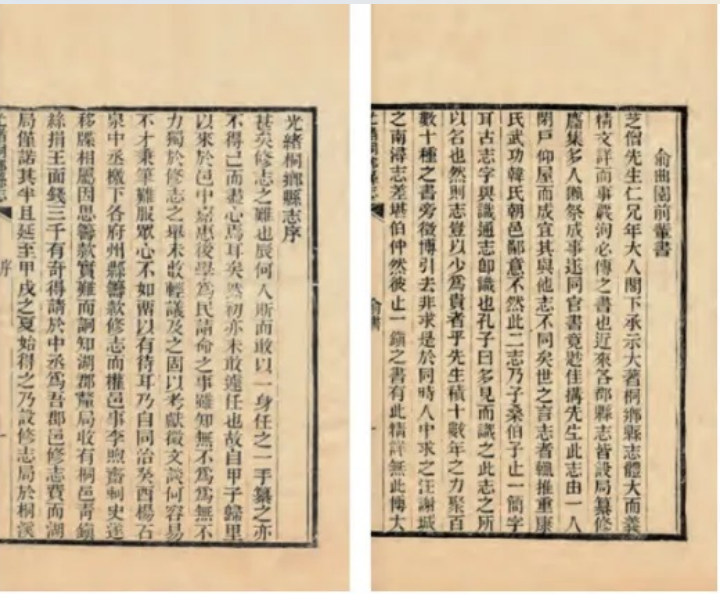 俞曲園前輩書
芝僧先生仁兄年大人閣下承示大著桐鄉縣志體大而義
精文詳而事覈洵必傳之書也近來各郡縣志皆設局纂修
廱集多人獺祭成事迄同官書竟尠佳搆先生此志由一人
閉戶仰屋而成宜其與他志不同矣世之言志者輒推重康
氏武功韓氏朝邑鄙意不然此二志乃子桑伯子止一簡字
耳古志字與識通志卽識也孔子曰多見而識之此志之所
以名也然則志豈以少爲貴者乎先生積十數年之力聚百
數十種之書旁徵博引去非求是於同時人中求之汪謝城
之南潯志差堪伯仲然彼止一鎮之書有此精詳無此博大
俞書
一
光緒桐鄉縣志序
甚矣修志之難也辰何人斯而敢以一身任之一手纂之亦
不得已而盡心焉耳矣然初亦未敢遽任也故自甲子歸里
以來於邑中嘉惠後學爲民請命之事雖知無不爲爲無不
力獨於修志之舉未敢輕議及之固以考獻徵文談何容易
不才秉筆難服眾心不如留以有待耳乃自同治癸酉楊石
泉中丞檄下各府州縣籌款修志而權邑事李煦齋刺史遂
移牒相屬因思籌款實難而詗知湖郡釐局收有桐邑青鎮
絲捐王面錢三千有奇得請於中丞爲吾郡邑修志費而湖
局僅諾其半且延至甲戌之夏始得之乃設修志局於桐溪
序
一